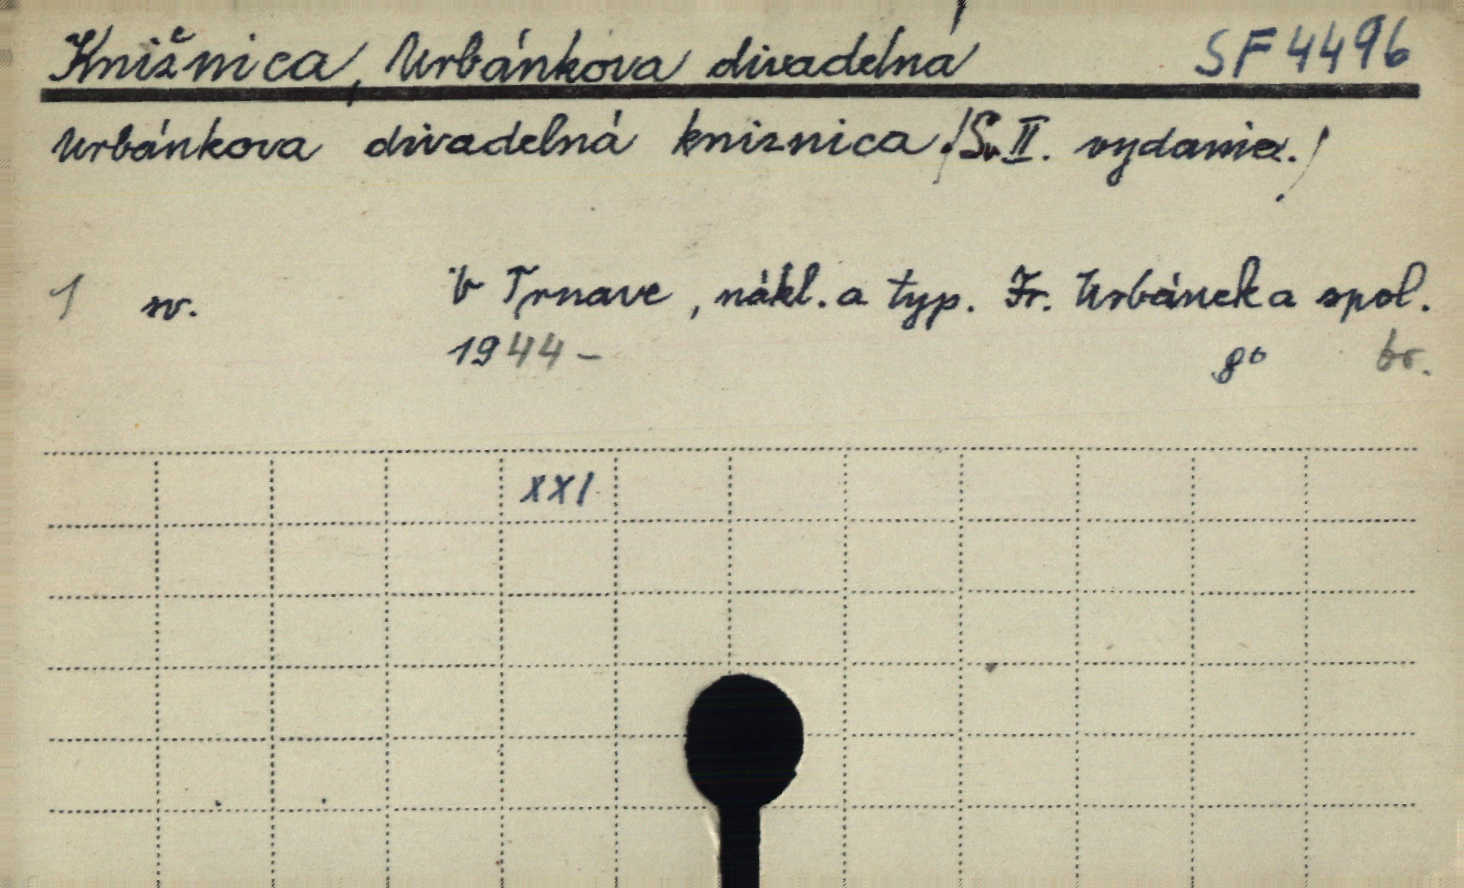 Knižnica, Urbánkova divadelná SF 4496
Urbánkova divadelná kniznica./Sv. II. vydanie./
1 sv. V Trnave, nákl. a typ. Fr. Urbánek a spol.
1944- 8° br.
XXI